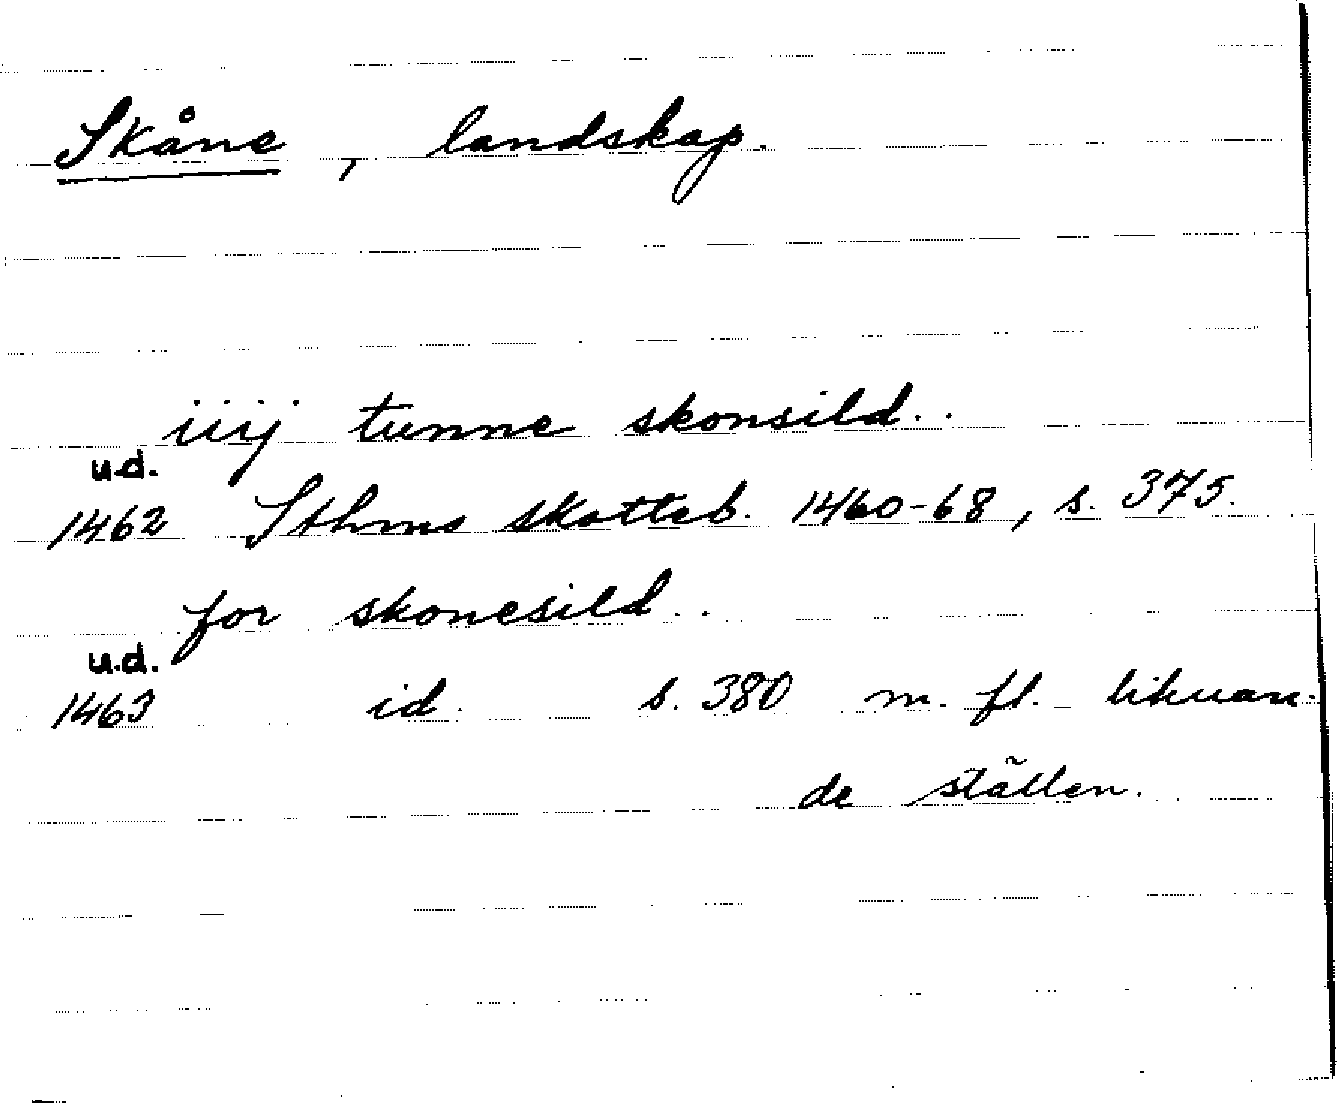 Skåne, landskap.
iiij tunne skonsild..
u.d.
1462 Sthms skatteb. 1460-68, s. 375.
for skonesild..
u.d.
1463 id. s. 380 m. fl. liknan-
de ställen.